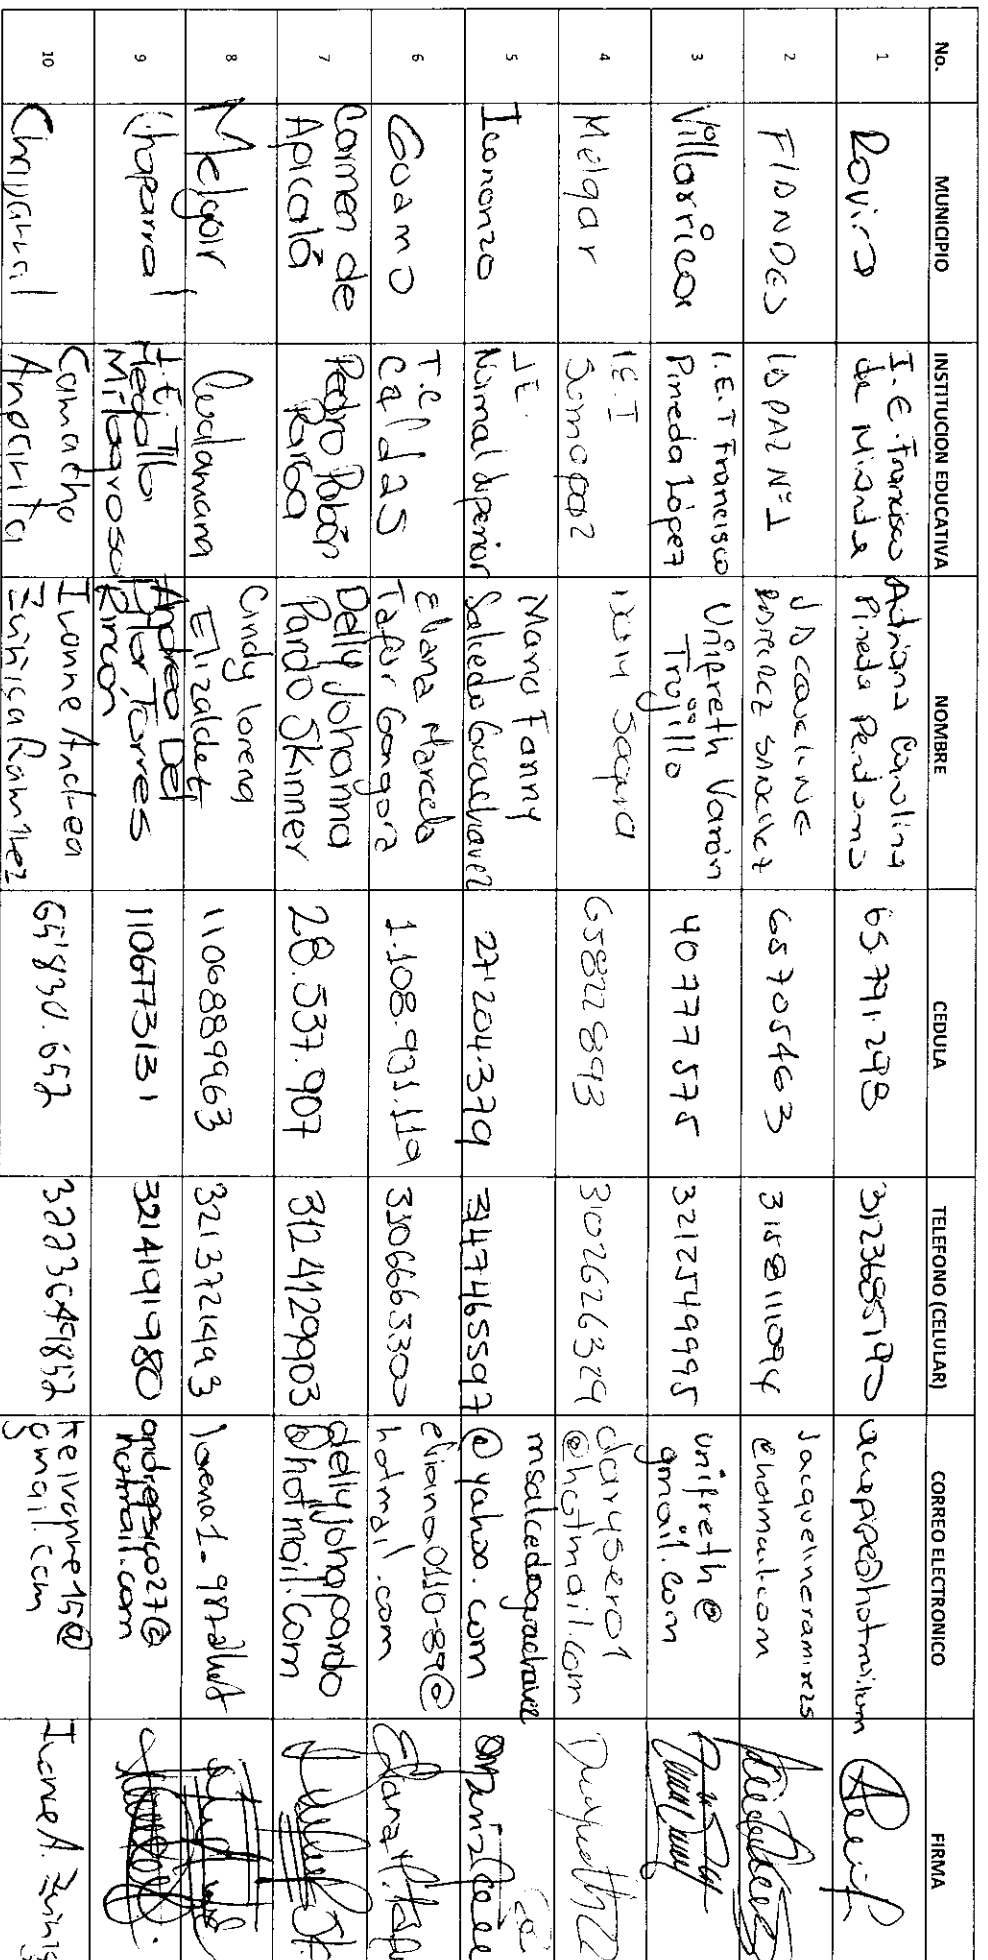 No. MUNICIPIO INSTITUCION EDUCATIVA NOMBRE CEDULA TELEFONO (CELULAR) CORREO ELECTRONICO FIRMA
1 Rovira I.E. Francisco de Miranda Adriana Carolina Pineda Perdomo 65.791.298 3123685190
2 FLANDES LA PAZ Nº1 JACQUELINE RAMIREZ SANCHEZ 65705463 3158111094 Jacquelineramirez5 @hotmail.com
3 Villarrica I.E.T Francisco Pineda López Unifreth Varón Trujillo 40777575 3212549995 unifreth@ gmail.com
4 Melgar I.E.I Sumapaz 65822893 3102626329 darysero1 @hotmail.com
5 Icononzo I.E. Normal Superior Maria Fanny Salcedo Guachavez 27'204.379 3147465597 msalcedoguachavez @yahoo.com
6 Guamo T.C Caldas Eliana Marcela Tafur Gongora 1.108.931.119 3106663300 eliana0110-89@ hotmail.com
7 Carmen de Apicalá Pedro Pabón Parga Delly Johanna Pardo Skinner 28.537.907 3124129903 dellyjohapardo @hotmail.com
8 Melgar Cualamana Cindy lorena Elizalde 1106889963 3213721493
9 Chaparral I.E. Medalla Milagrosa Andrea Del Pilar Torres Rincon 110677313 1 3214191980 hotmail.com
10 Chaparral Camacho Angarita Ivonne Andrea Zuñiga Ramirez 65'830.652 3223649852 gmail.com Ivonne A. Zuñig